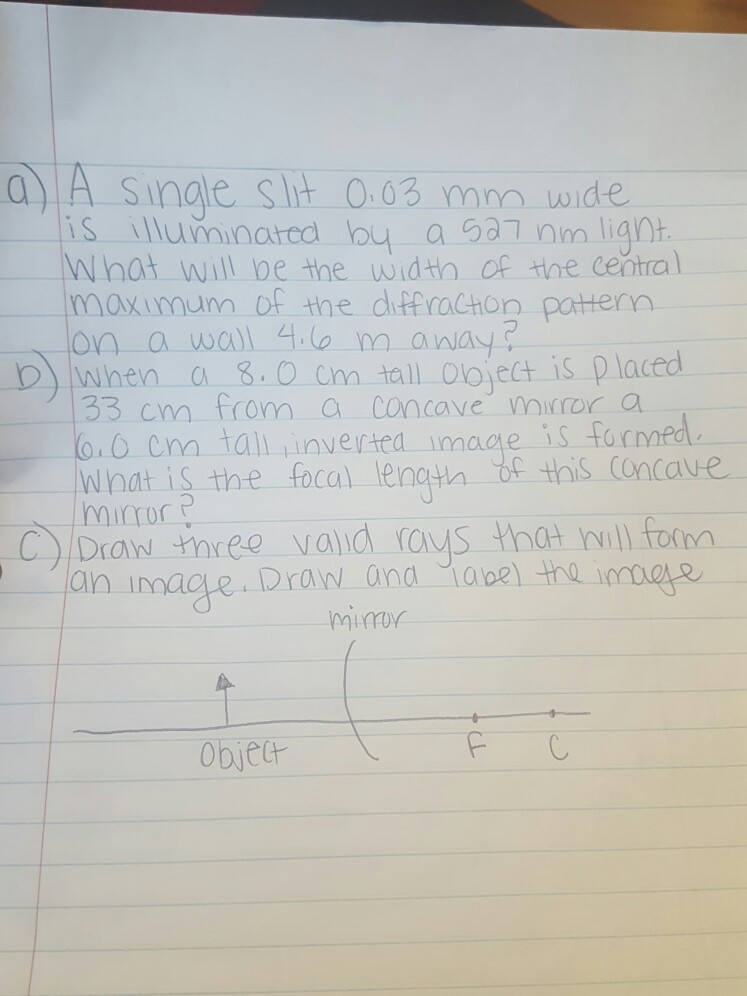 a) A single slit 0.03 mm wide
is illuminated by a 527 nm light.
What will be the width of the central
maximum of the diffraction pattern
on a wall 4.6 m away?
b) When a 8.0 cm tall object is placed
33 cm from a concave mirror a
6.0 cm tall, inverted image is formed.
What is the focal length of this concave
mirror?
c) Draw three valid rays that will form
an image. Draw and label the image
mirror
Object
F
C